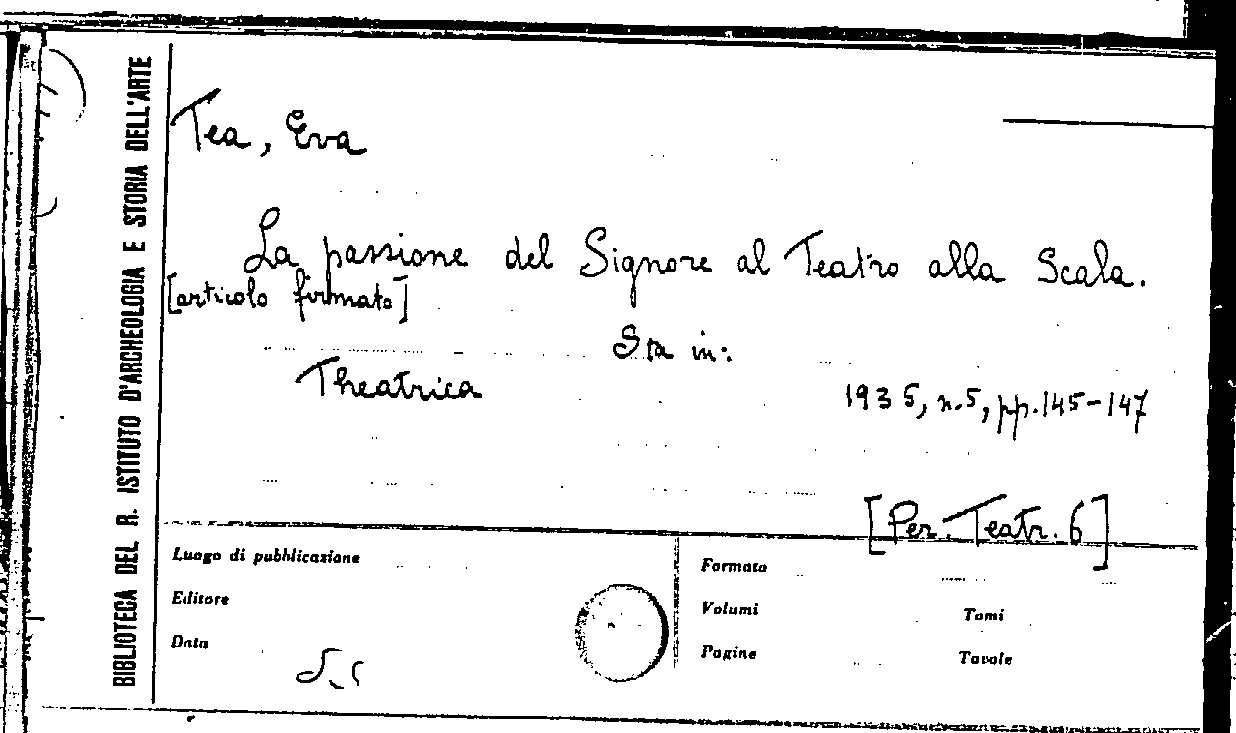 BIBLIOTECA DEL R. ISTITUTO D'ARCHEOLOGIA E STORIA DELL'ARTE
Tea, Eva
La passione del Signore al Teatro alla Scala.
[articolo firmato]
Sta in:
Theatrica
1935, n.5, pp.145-147
[Per. Teatr. 6]
Luogo di pubblicazione
Editore
Data
Formato
Volumi Tomi
Pagine Tavole